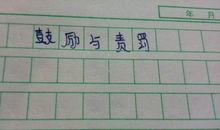 年 月
鼓励与责罚